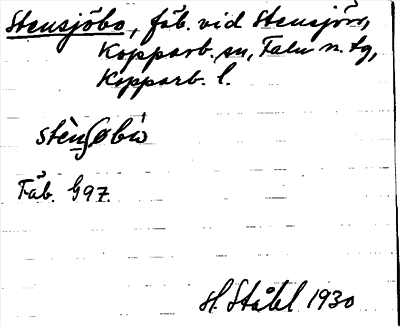 Stensjöbo, fäb. vid Stensjön,
Kopparb. sn, Falu n. tg,
Kopparb. l.
stènʃøbò
Fäb. G97.
H Ståhl 1930